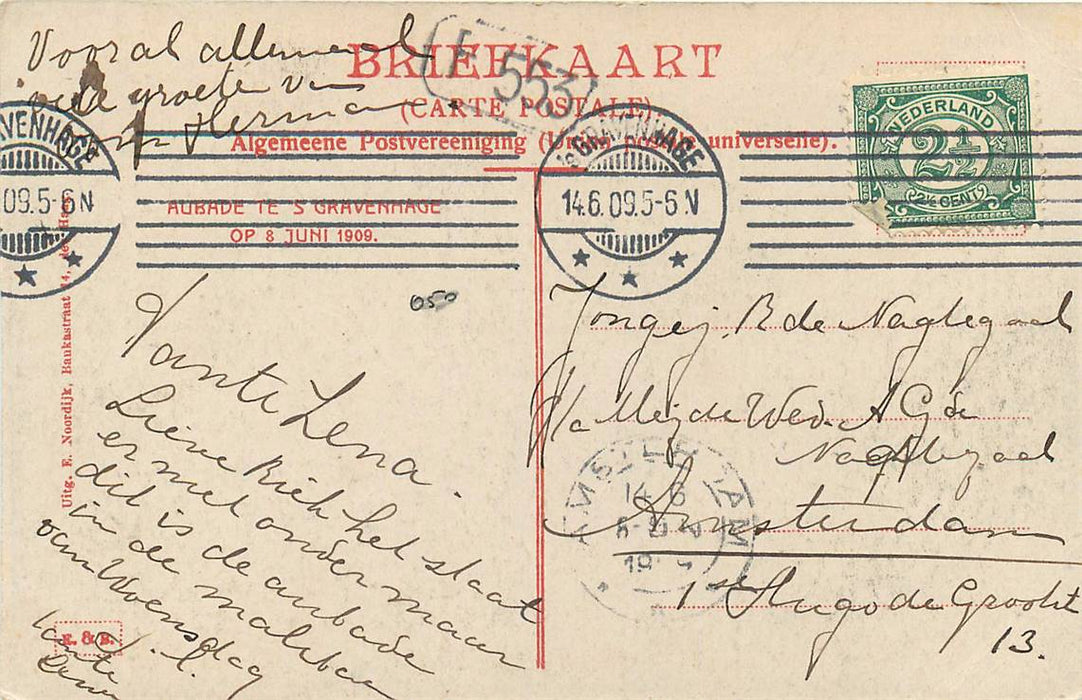 Vooral allemaal
groete van
Herman
BRIEFKAART
(CARTE POSTALE)
Algemeene Postvereeniging (Union postale universelle).
F 553
NEDERLAND
2½
2½ CENT
'S GRAVENHAGE
14.6.09.5-6 N
GRAVENHAGE
09.5-6 N
AUBADE TE 'S GRAVENHAGE
OP 8 JUNI 1909.
050
Uitg. E. Noordijk, Bankastraat 14, den Haag
E. & B.
Tante Lena.
Lieve Riek het staat
er met onder maar
dit is de aubade
in de malieban
van Woensdag
Tante
Jongej. R de Nagtegaal
p/a Mej de Wed. A G de
Nagtegaal
Amsterdam
1ste Hugo de Grootst
13.
AMSTERDAM
14 6